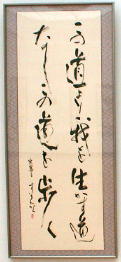 この道より我を生かす道
なしこの道を歩く